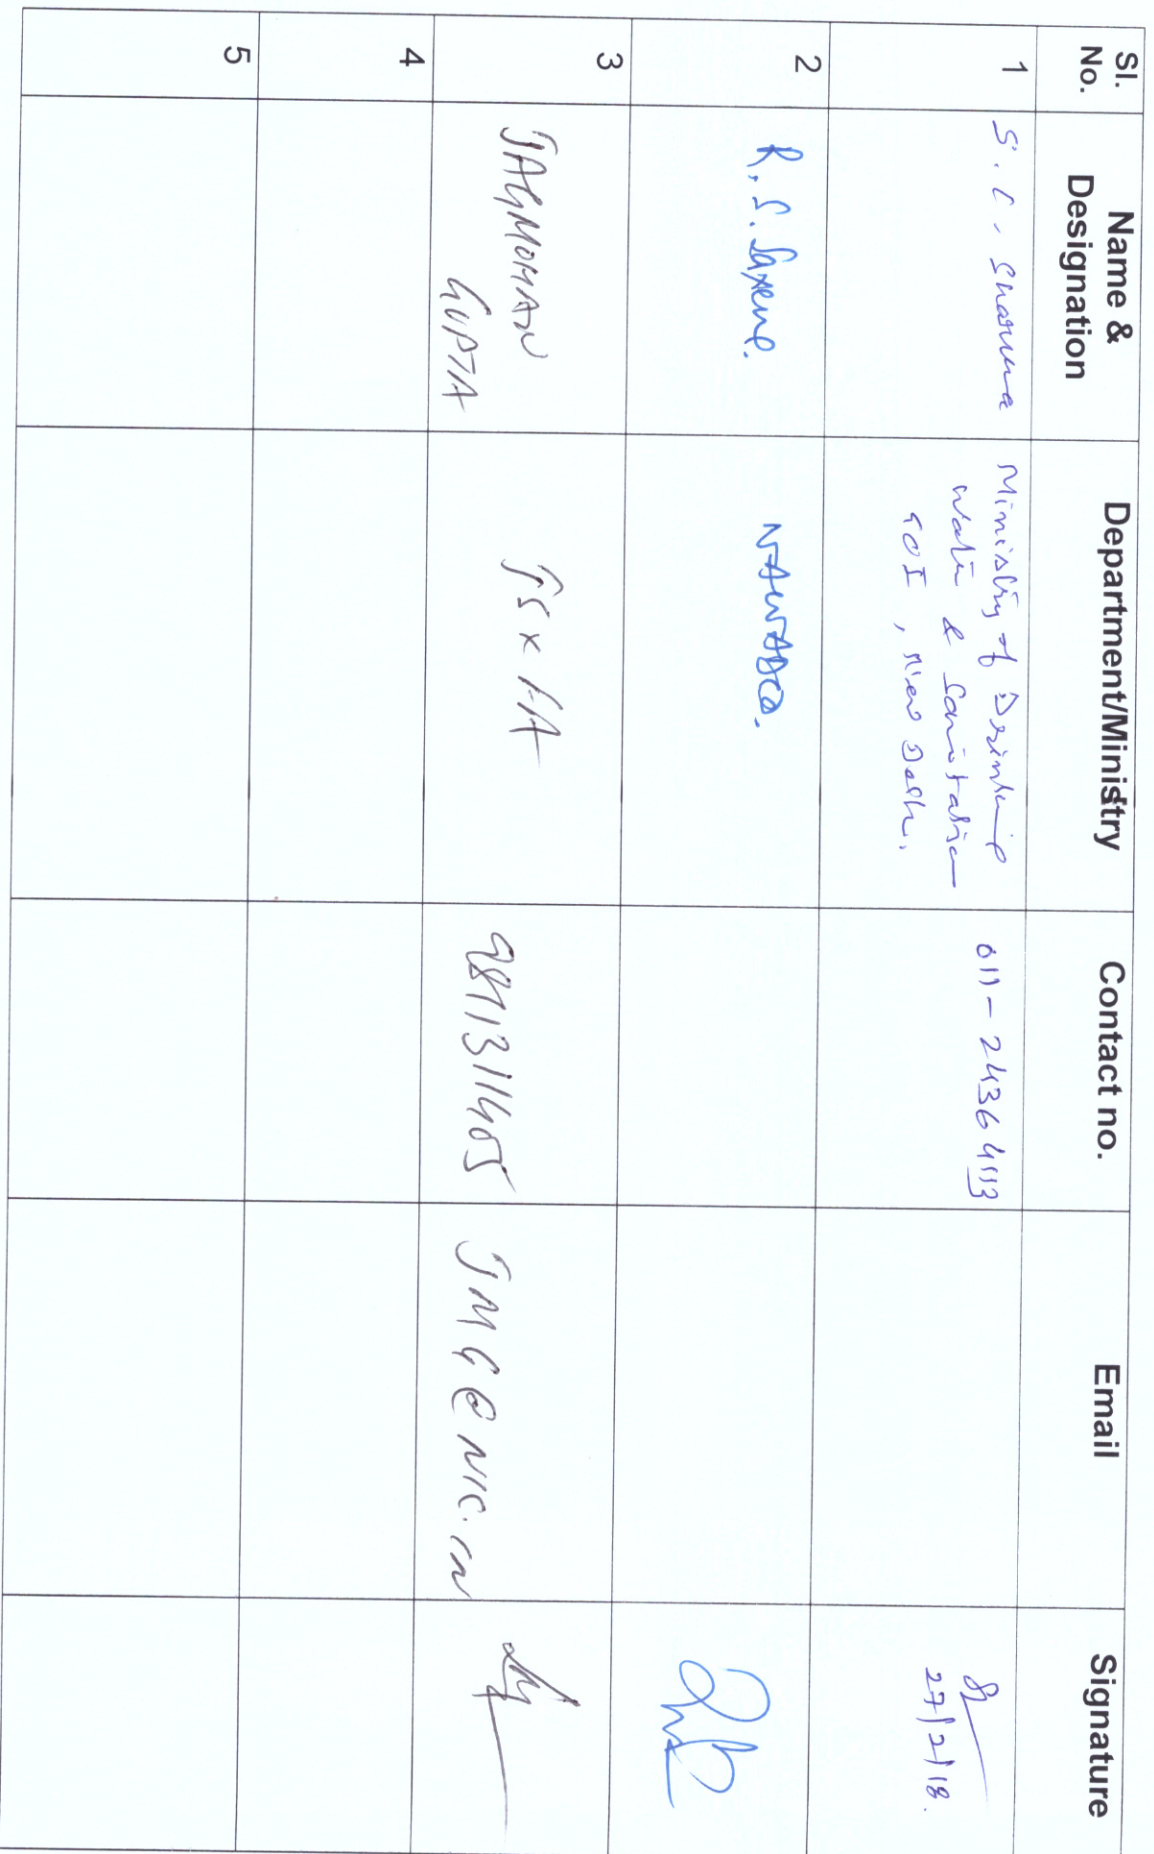 Sl. No.
Name & Designation
Department/Ministry
Contact no.
Email
Signature
1
S. C. Sharma
Ministry of Drinking
Water & Sanitation
GOI, New Delhi.
27/2/18.
2
R. S. Saxena.
3
JAGMOHAN
GUPTA
9871311405
JMG@NIC.IN
4
5